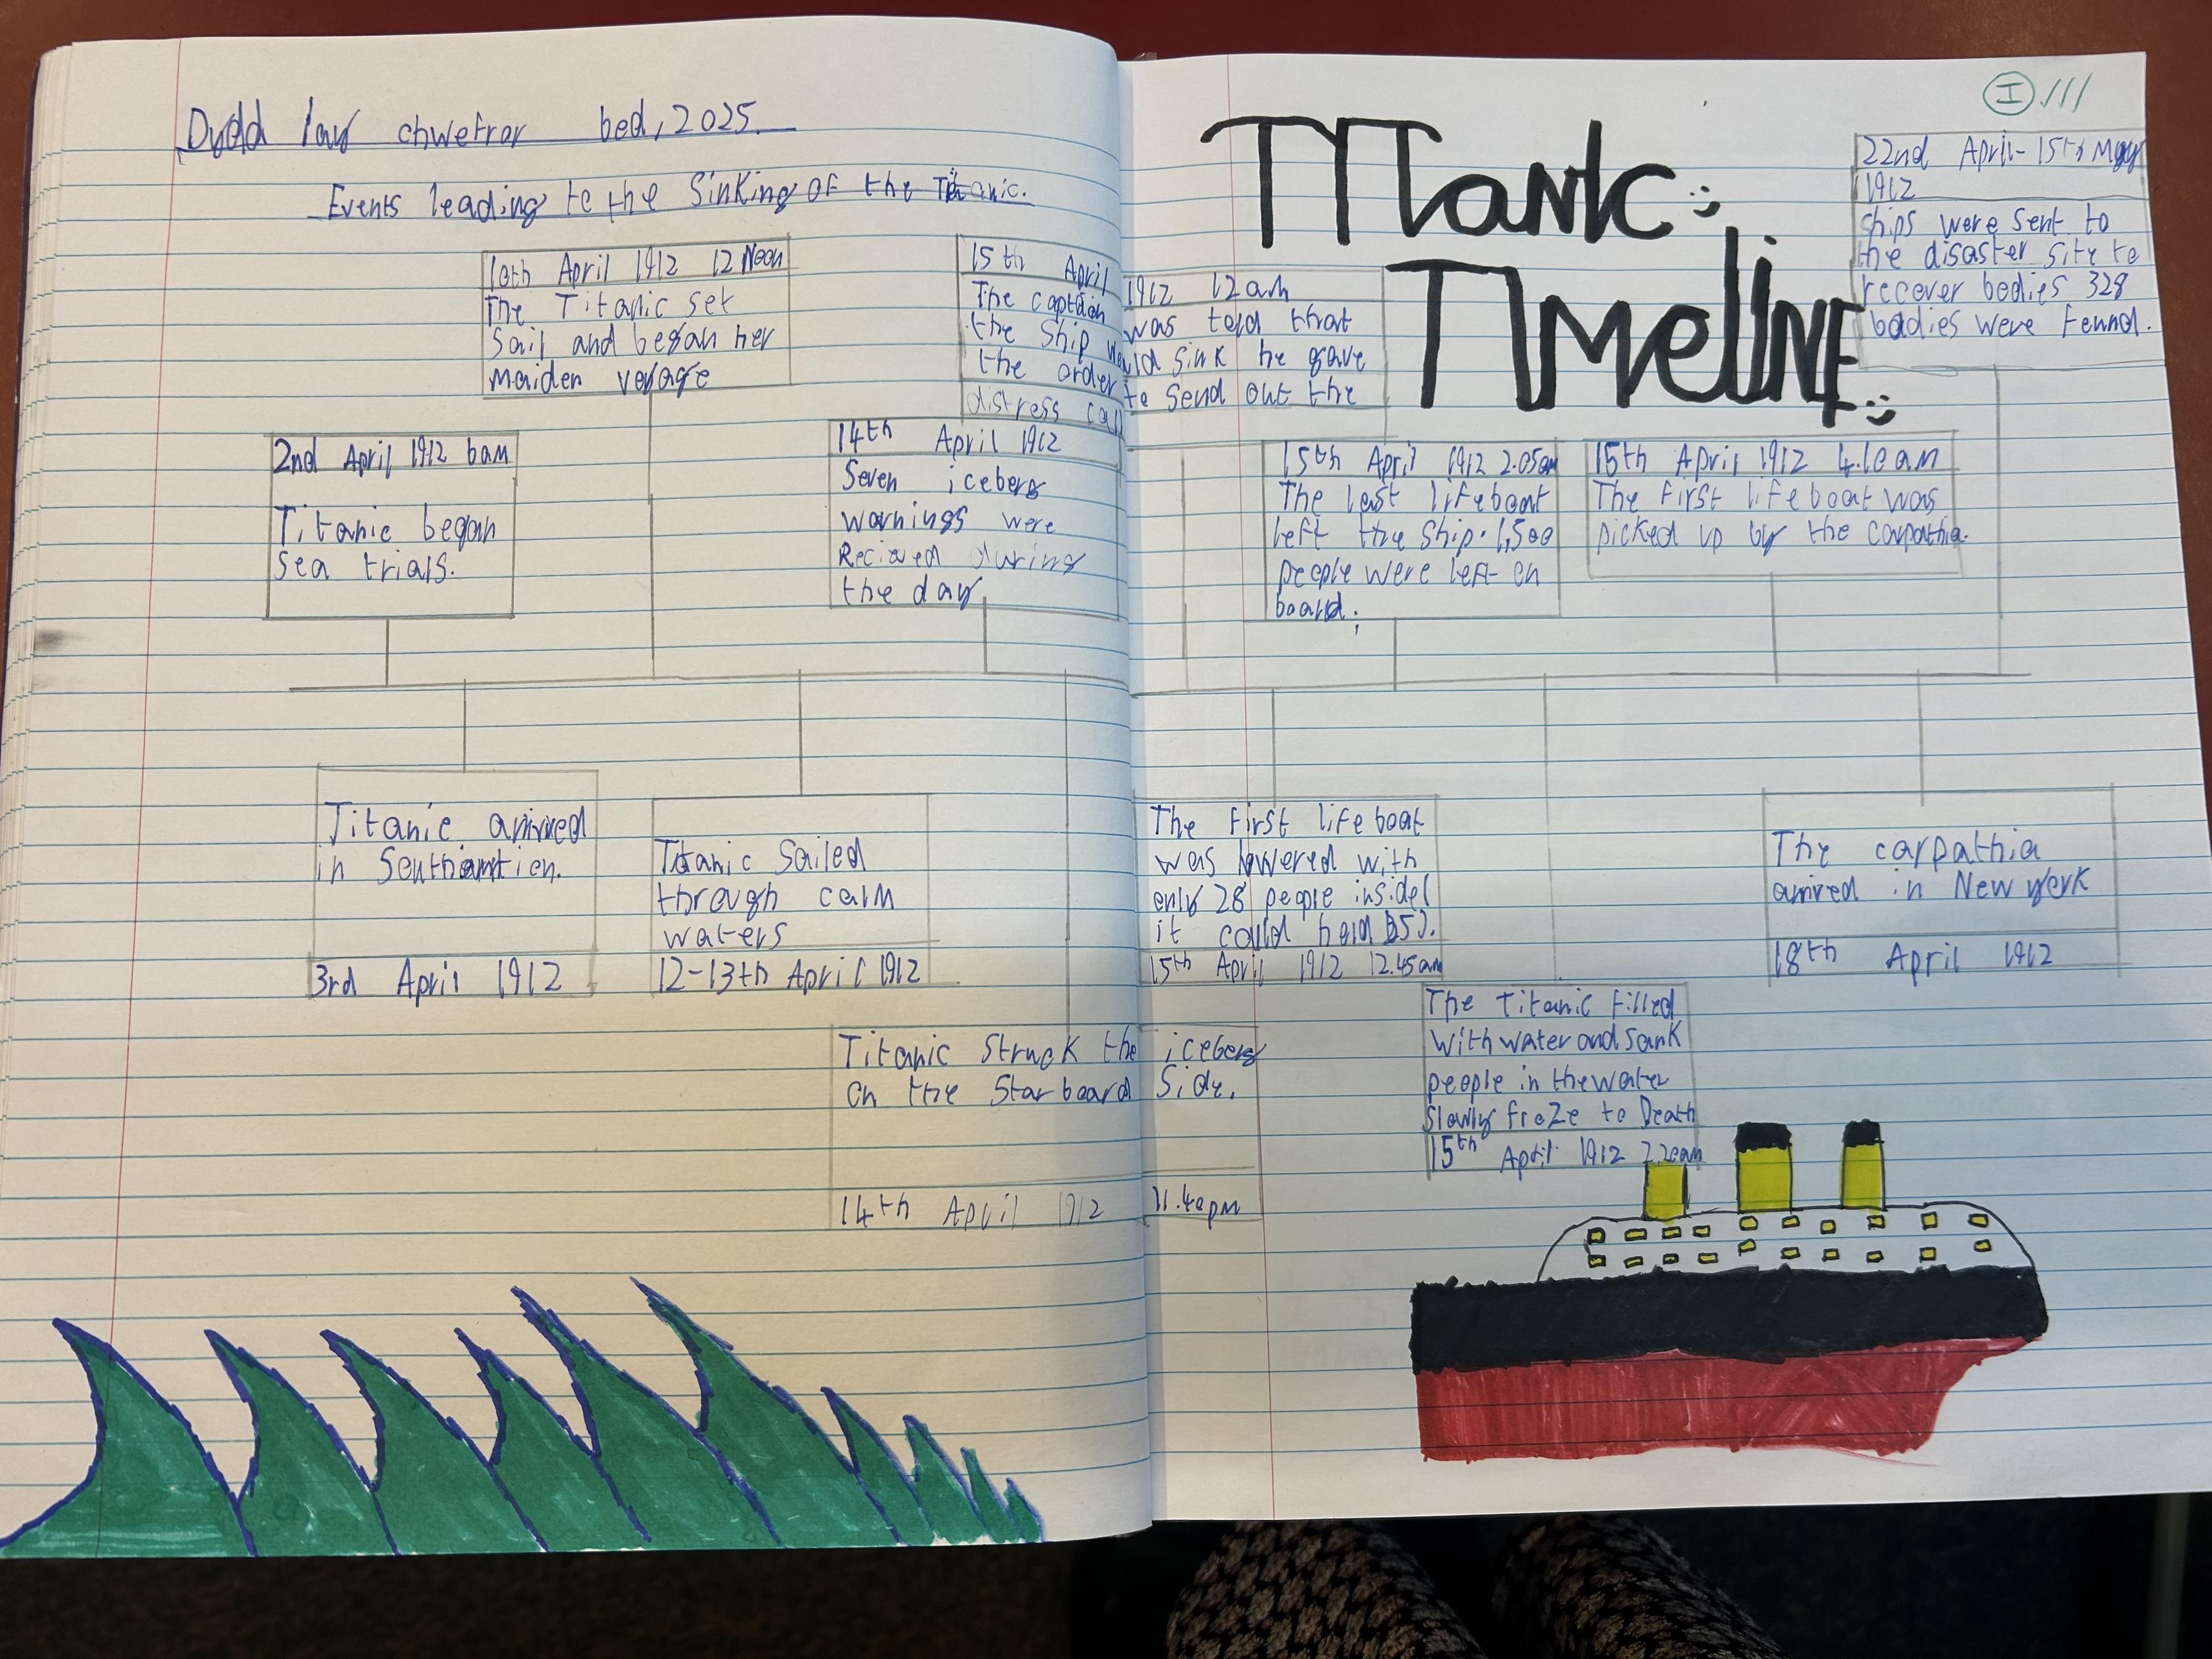 Dydd Iau chwefror bed, 2025.
Events leading to the Sinking of the Titanic.
10th April 1912 12 Noon
The Titanic set
Sail and began her
Maiden voyage
15th April 1912 12am
The captain was told that
the Ship would sink he gave
the order to send out the
distress call
2nd April 1912 6am
Titanic began
sea trials.
14th April 1912
Seven iceberg
warnings were
Recieved during
the day
TITanIc
TImelINE
I
22nd April-15th May
1912
Ships were sent to
the disaster site to
recover bodies 328
bodies were Found.
15th April 1912 2.05am
The last lifeboat
left the ship. 1,500
people were left on
board.
15th April 1912 4.10am
The First lifeboat was
picked up by the carpathia.
Titanic arrived
in
3rd April 1912
Titanic Sailed
through calm
waters
12-13th April 1912
Titanic Struck the iceberg
on the Starboard Side.
14th April 1912 11.40pm
The First lifeboat
was lowered with
only 28 people inside(
it could hold 65).
15th April 1912 12.45am
The Titanic Filled
With water and Sank
people in the water
Slowly froze to Death
15th April 1912 2.20am
The carpathia
arrived in New York
18th April 1912